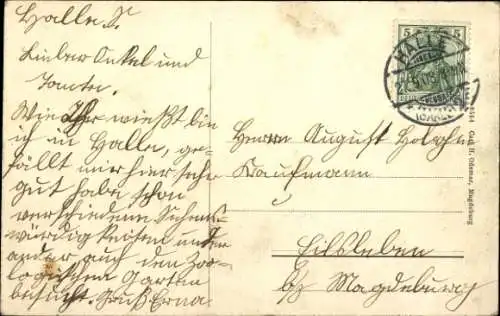 Halle S.
Lieber Onkel und
Tante.
Wie Ihr wießt bin
ich in Halle, ge-
fällt mir hier sehr
gut habe schon
verschiedene Sehens-
würdigkeiten unter
ander auch den Zoo-
logischen Garten
besucht. Gruß Erna
5 5
HALLE
(SAALE)
Herrn August
Kaufmann
Eilsleben
b/ Magdeburg
Carl H. Odemar, Magdeburg